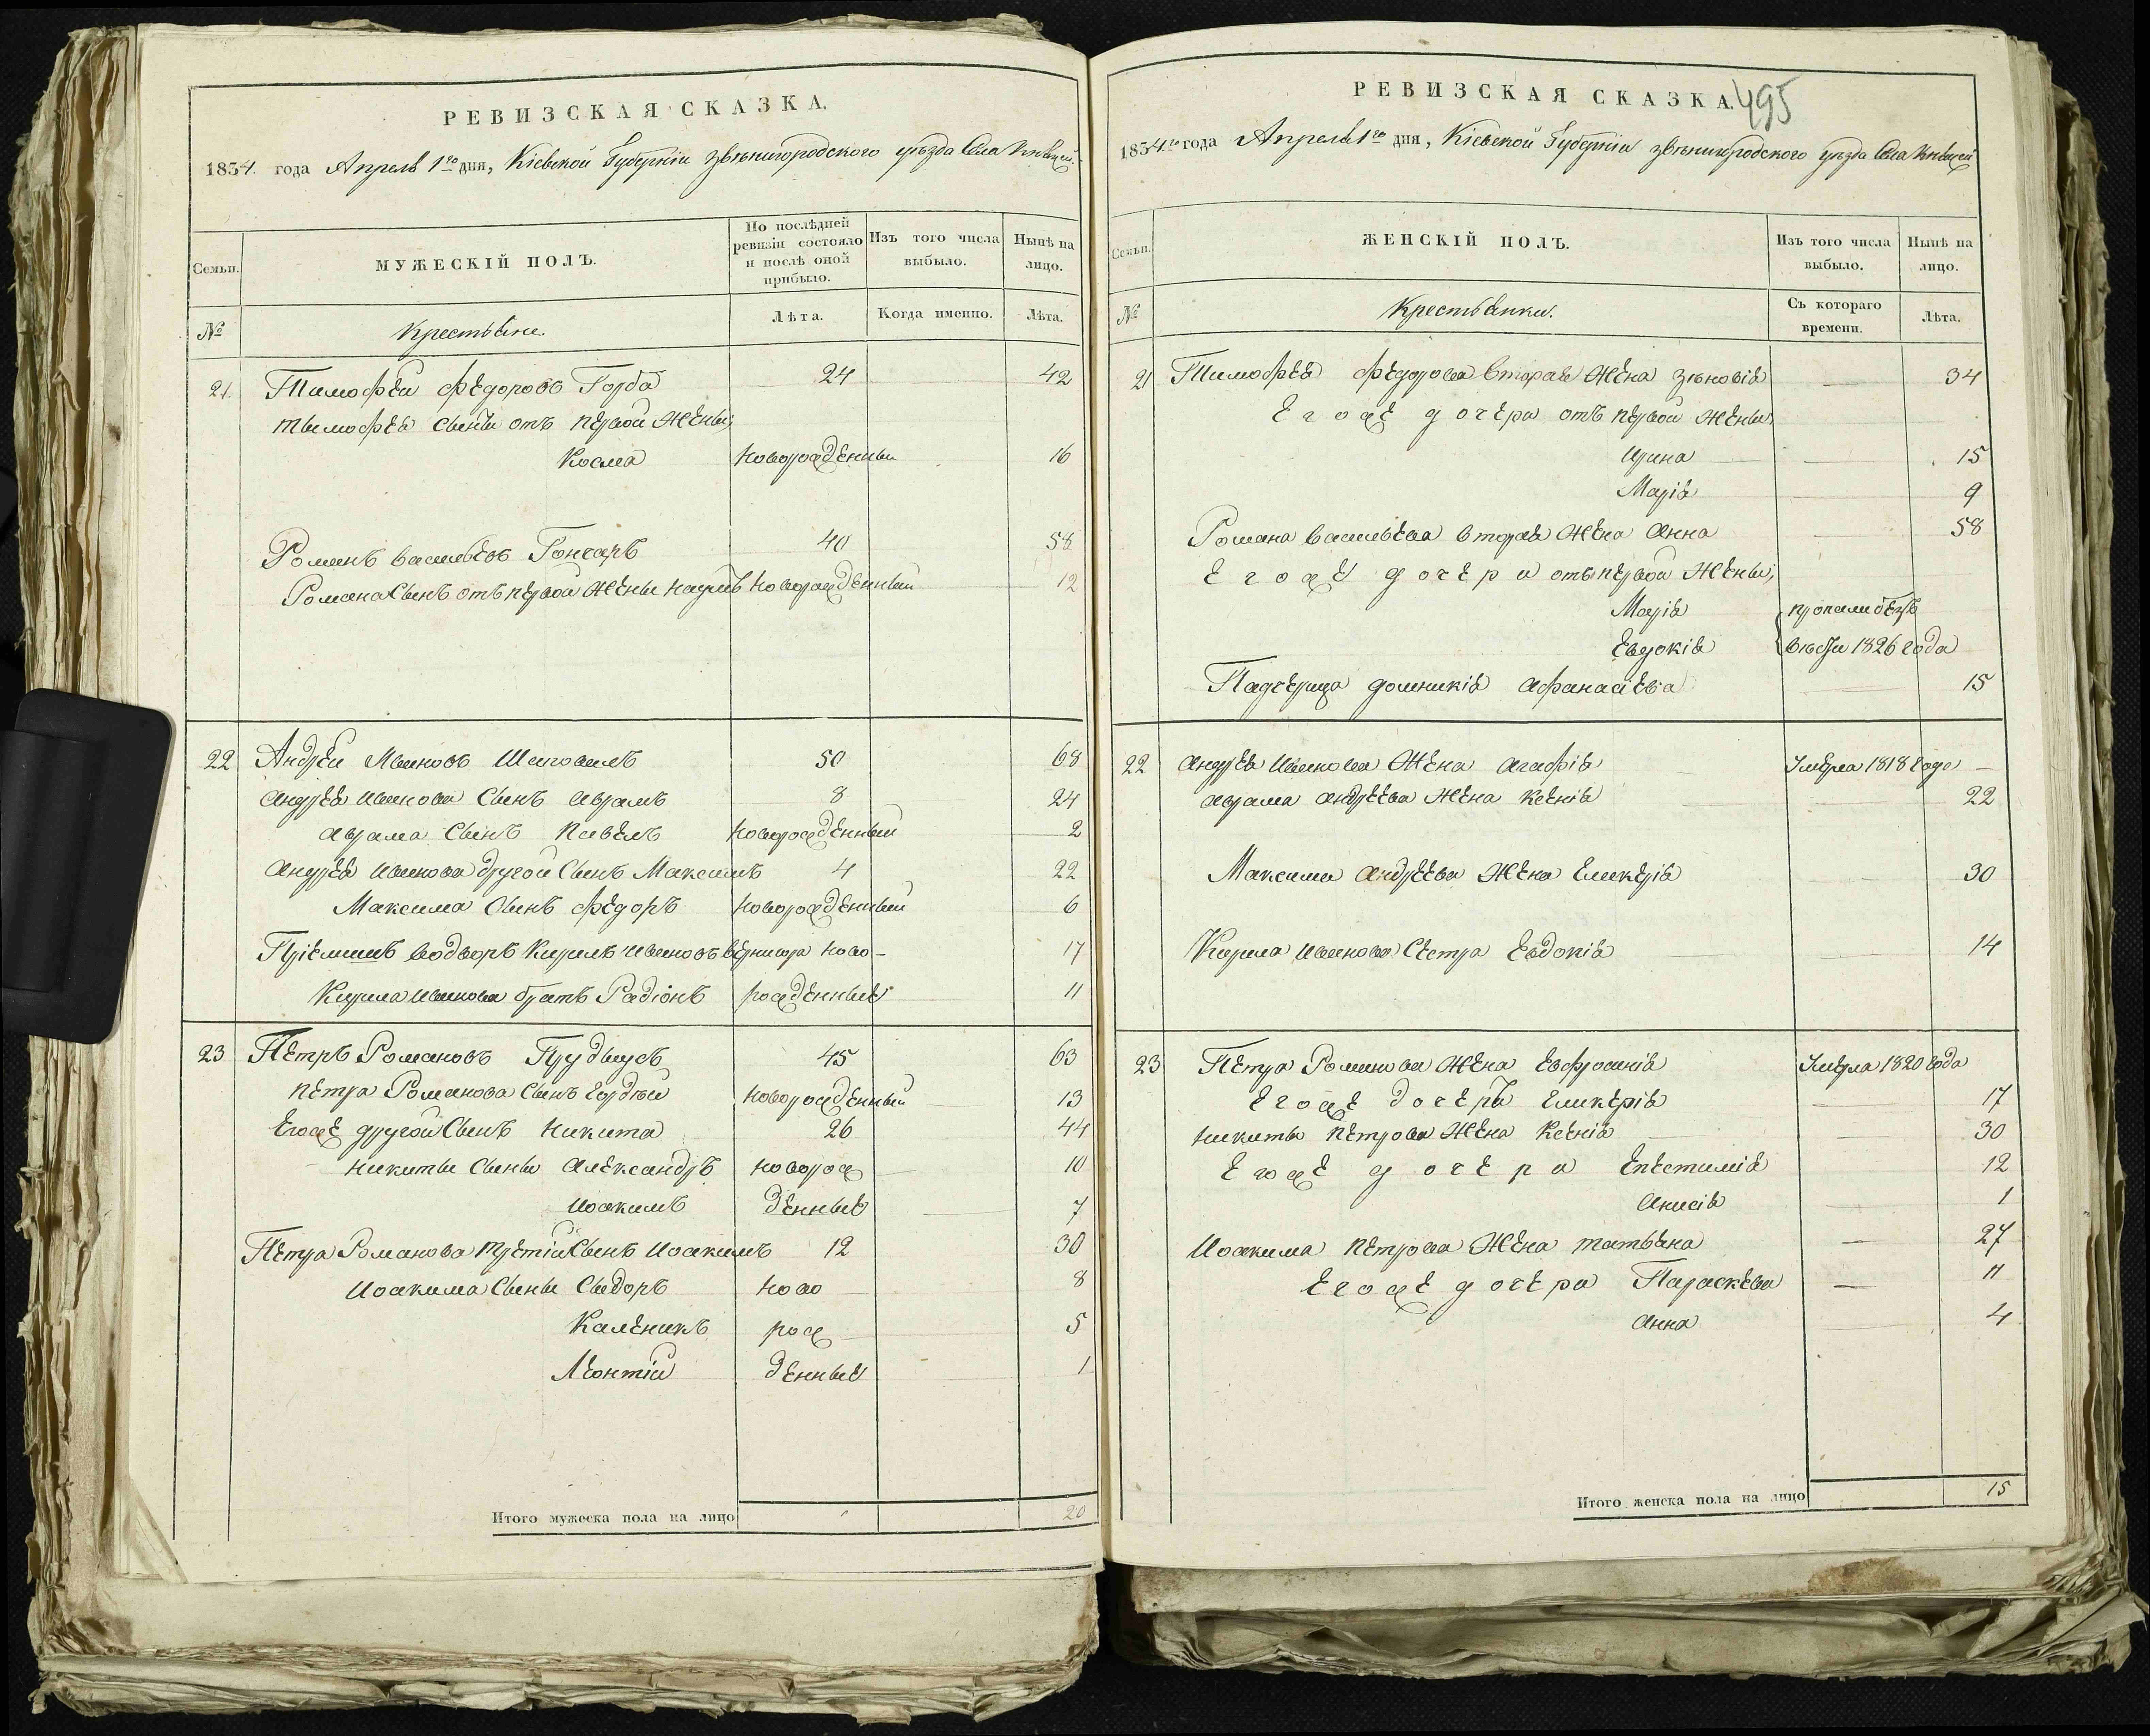 РЕВИЗСКАЯ СКАЗКА.
1834. года Апреля 1го дня, Кіевской Губерніи Звѣнигородского уѣзда Села
Семьи.
МУЖЕСКІЙ ПОЛЪ.
По послѣдней ревизіи состояло и послѣ оной прибыло.
Изъ того числа выбыло.
Нынѣ на лицо.
№
Крестьяне.
Лѣта.
Когда именно.
Лѣта.
21. Тимофей Федоровъ Горба 24 42
Тымофея сыны отъ первой жены,
Косма новорожденный 16
Романъ Васильевъ Гончаръ 40 58
Романа Сынъ отъ первой жены Наумъ новорожденный 12
22 Андрей Ивановъ Шаповалъ 50 68
Андрея Иванова Сынъ Аврамъ 8 24
Аврама Сынъ Павелъ новорожденный 2
Андрея Иванова другой Сынъ Максимъ 4 22
Максима Сынъ Федоръ новорожденный 6
Пріемышъ водворъ Кирилъ Ивановъ Вернигора ново- 17
Кирила Иванова братъ Радіонъ рожденные 11
23 Петръ Романовъ Прудвусъ 45 63
Петра Романова Сынъ Гордѣй новорожденный 13
Егоже другой Сынъ Никита 26 44
Никиты Сыны Александръ новорож 10
Иоакимъ денные 7
Петра Романова третій Сынъ Иоакимъ 12 30
Иоакима Сыны Сыдоръ ново 8
Каленикъ рож 5
Леонтій денные 1
Итого мужеска пола на лицо 20
РЕВИЗСКАЯ СКАЗКА.
495
1834го года Апреля 1го дня, Кіевской Губерніи Звѣнигородского уѣзда Села
Семьи.
ЖЕНСКІЙ ПОЛЪ.
Изъ того числа выбыло.
Нынѣ на лицо.
№
Крестьянки.
Съ котораго времени.
Лѣта.
21 Тимофея Федорова вторая жена Зѣновія 34
Егоже дочери отъ первой жены,
Ирина 15
Марія 9
Романа Васильева вторая жена Анна 58
Егоже дочери отъ первой жены,
Марія пропали безъ
Евдокія вѣсти 1826 года
Падчерица Домникія Афанасіева 15
22 Андрея Иванова жена Агафія Умерла 1818 года
Аврама Андреева жена Ксенія 22
Максима Андреева жена Гликерія 30
Кирила Иванова Сестра Евдокія 14
23 Петра Романова жена Евфросинія Умерла 1820 года
Егоже дочерь Гликерія 17
Никиты Петрова жена Ксенія 30
Егоже дочери Епестимія 12
Анисія 1
Иоакима Петрова жена Татьяна 27
Егоже дочери Параскева 11
Анна 4
Итого женска пола на лицо 15